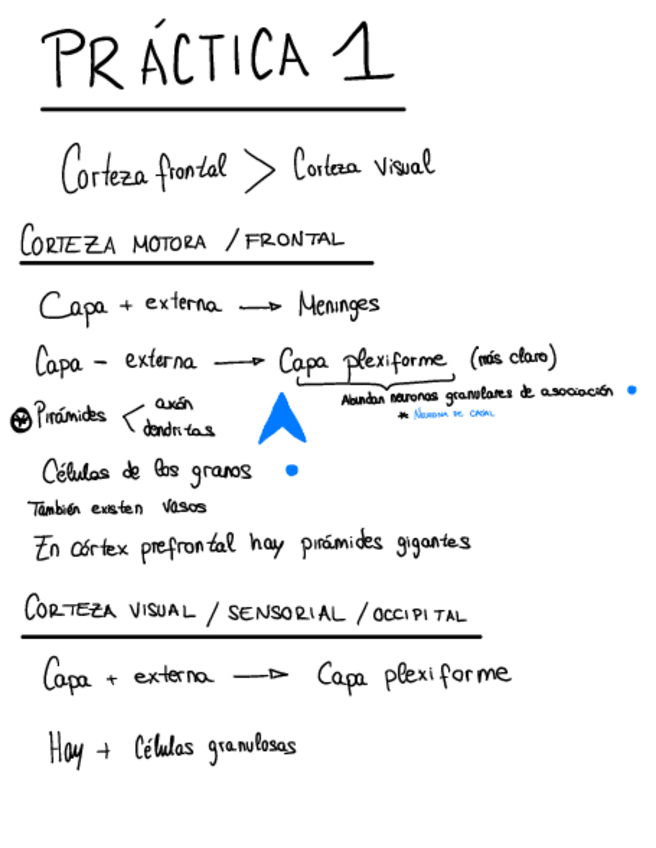 PRÁCTICA 1
Corteza frontal > Corteza visual
CORTEZA MOTORA / FRONTAL
Capa + externa → Meninges
Capa - externa → Capa plexiforme (más claro)
Abundan neuronas granulares de asociación
* NEURONA DE CAJAL
Pirámides < axón
dendritas
Células de los granos
También existen vasos
En córtex prefrontal hay pirámides gigantes
CORTEZA VISUAL / SENSORIAL / OCCIPITAL
Capa + externa → Capa plexiforme
Hay + Células granulosas